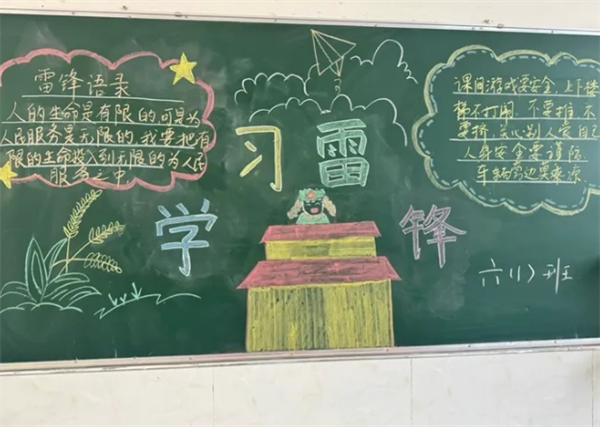 雷锋语录
人的生命是有限的,可是为
人民服务是无限的,我要把有
限的生命投入到无限的为人民
服务之中
学习雷锋
课间游戏要安全,上下楼
梯不打闹 不要推不
要挤 关心别人爱自己
人身安全要谨防
车辆旁边莫乘凉
六(1)班